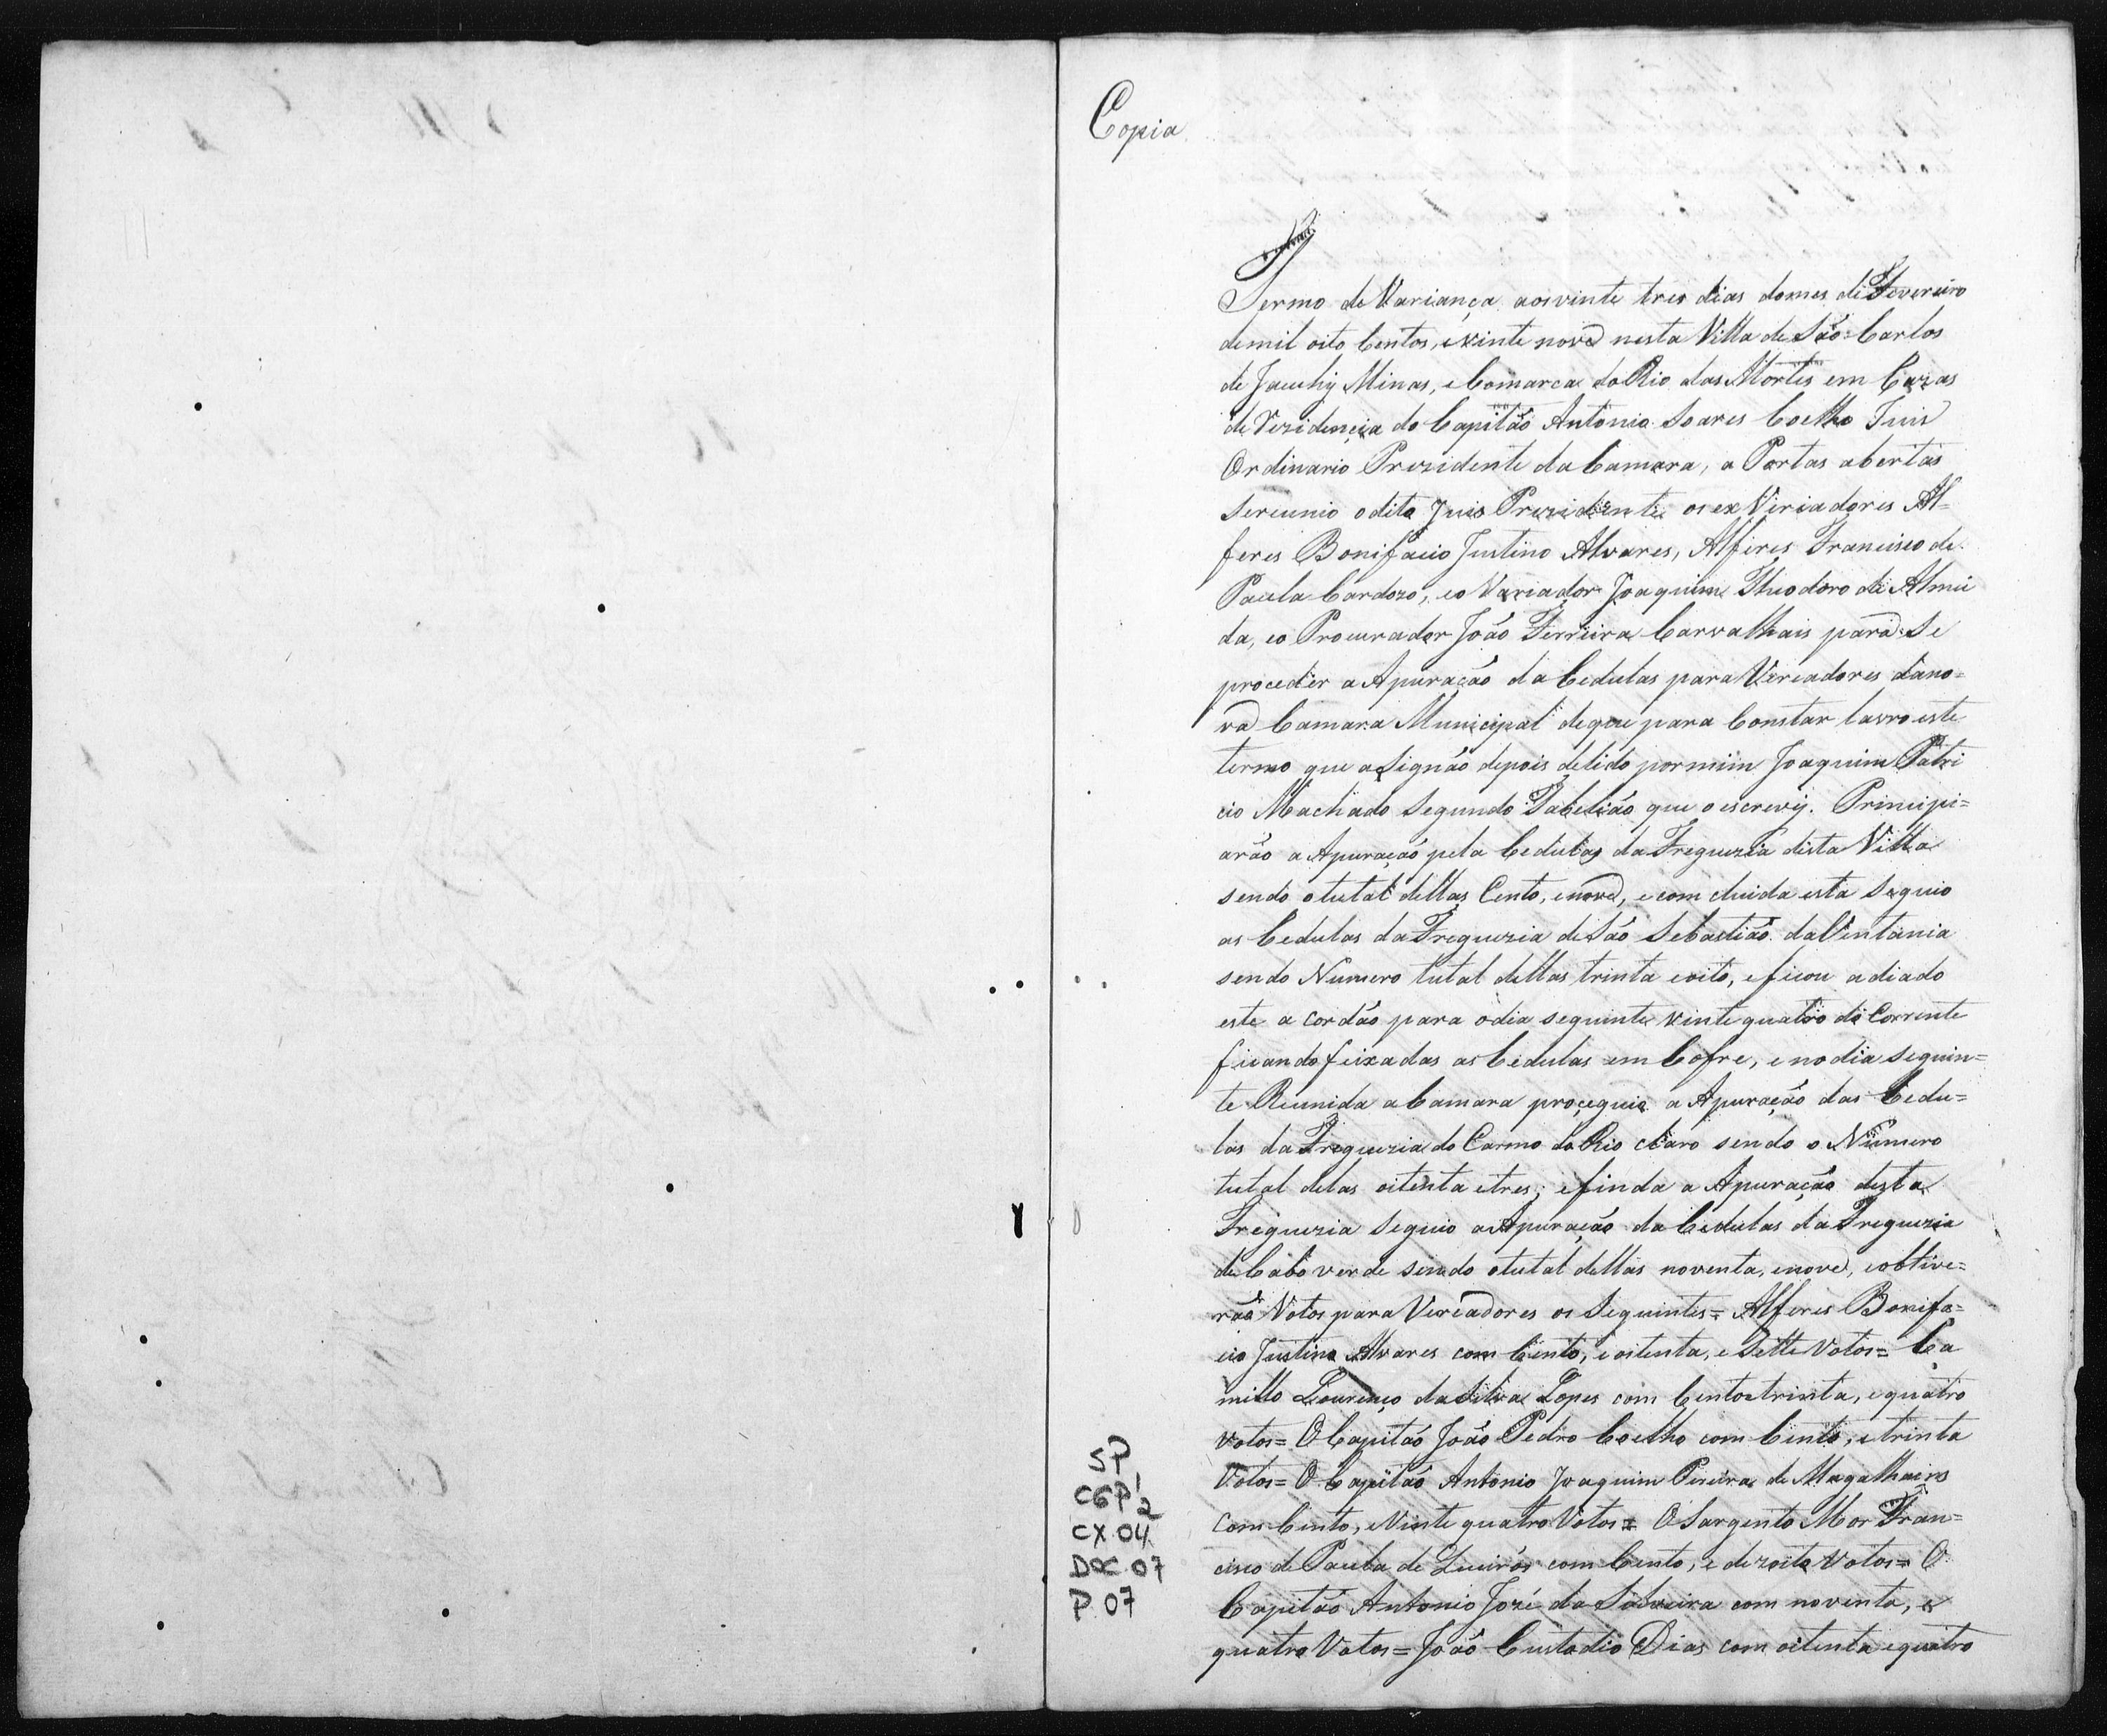 Copia
Termo de Variança aos vinte tres dias do mes de Fevereiro
de mil oito Centos, e vinte nove nesta Villa de São Carlos
de Jacuhy Minas, e Comarca do Rio das Mortes em Cazas
de Rezidencia do Capitão Antonio Soares Coelho Juis
Ordinario Prezidente da Camara, a Portas abertas
Sereunio o dito Juis Prezidente os ex Veriadores Al=
feres Bonifacio Justino Alvares, Alferes Francisco de
Paula Cardozo, e o Variador Joaquim Theodoro de Almei
da, e o Procurador João Ferreira Carvalhais para Se
proceder a Apuração da Cedulas para Vereadores da no=
va Camara Municipal de que para Constar lavro este
termo que asignão depois de lido por mim Joaquim Patri
cio Machado Segundo Tabelião que o escrevy. Principi=
arão a Apuração pela Cedulas da Freguezia desta Villa
sendo o tutal dellas Cento, e nove, e com cluida esta Seguio
as Cedulas da Freguezia de São Sebastião da Ventania
sendo Numero tutal dellas trinta e oito, e ficou adiado
este a cordão para o dia seguinte vinte quatro do Corrente
ficando feixadas as Cedulas em Cofre, e no dia seguin=
te Reunida a Camara proçeguio a Apuração das Cedu=
las da Freguezia do Carmo do Rio claro sendo o Numero
tutal delas oitenta e tres; e finda a Apuração desta
Freguezia Seguio a Apuração da Cedulas da Freguezia
de Cabo verde sendo o tutal dellas noventa, e nove, e obtive=
rão Votos para Vereadores os Seguintes= Alferes Bonifa=
cio Justino Alvares com Cento, e oitenta, e Sette Votos= Ca
millo Lourenço da Silva Lopes com Cento e trinta, e quatro
votos= O Capitão João Pedro Coelho com Cento, e trinta
Votos= O Capitão Antonio Joaquim Pereira de Magalhains
Com Cento, e Vinte quatro Votos= O Sargento Mor Fran=
cisco de Paula de Queirós com Cento, e dezoito Votos= O
Capitão Antonio Jozé da Silveira com noventa, e
quatro Votos= João Custodio Dias com oitenta e quatro
SP
CGP1
2
CX.04.
DOC.07
P.07